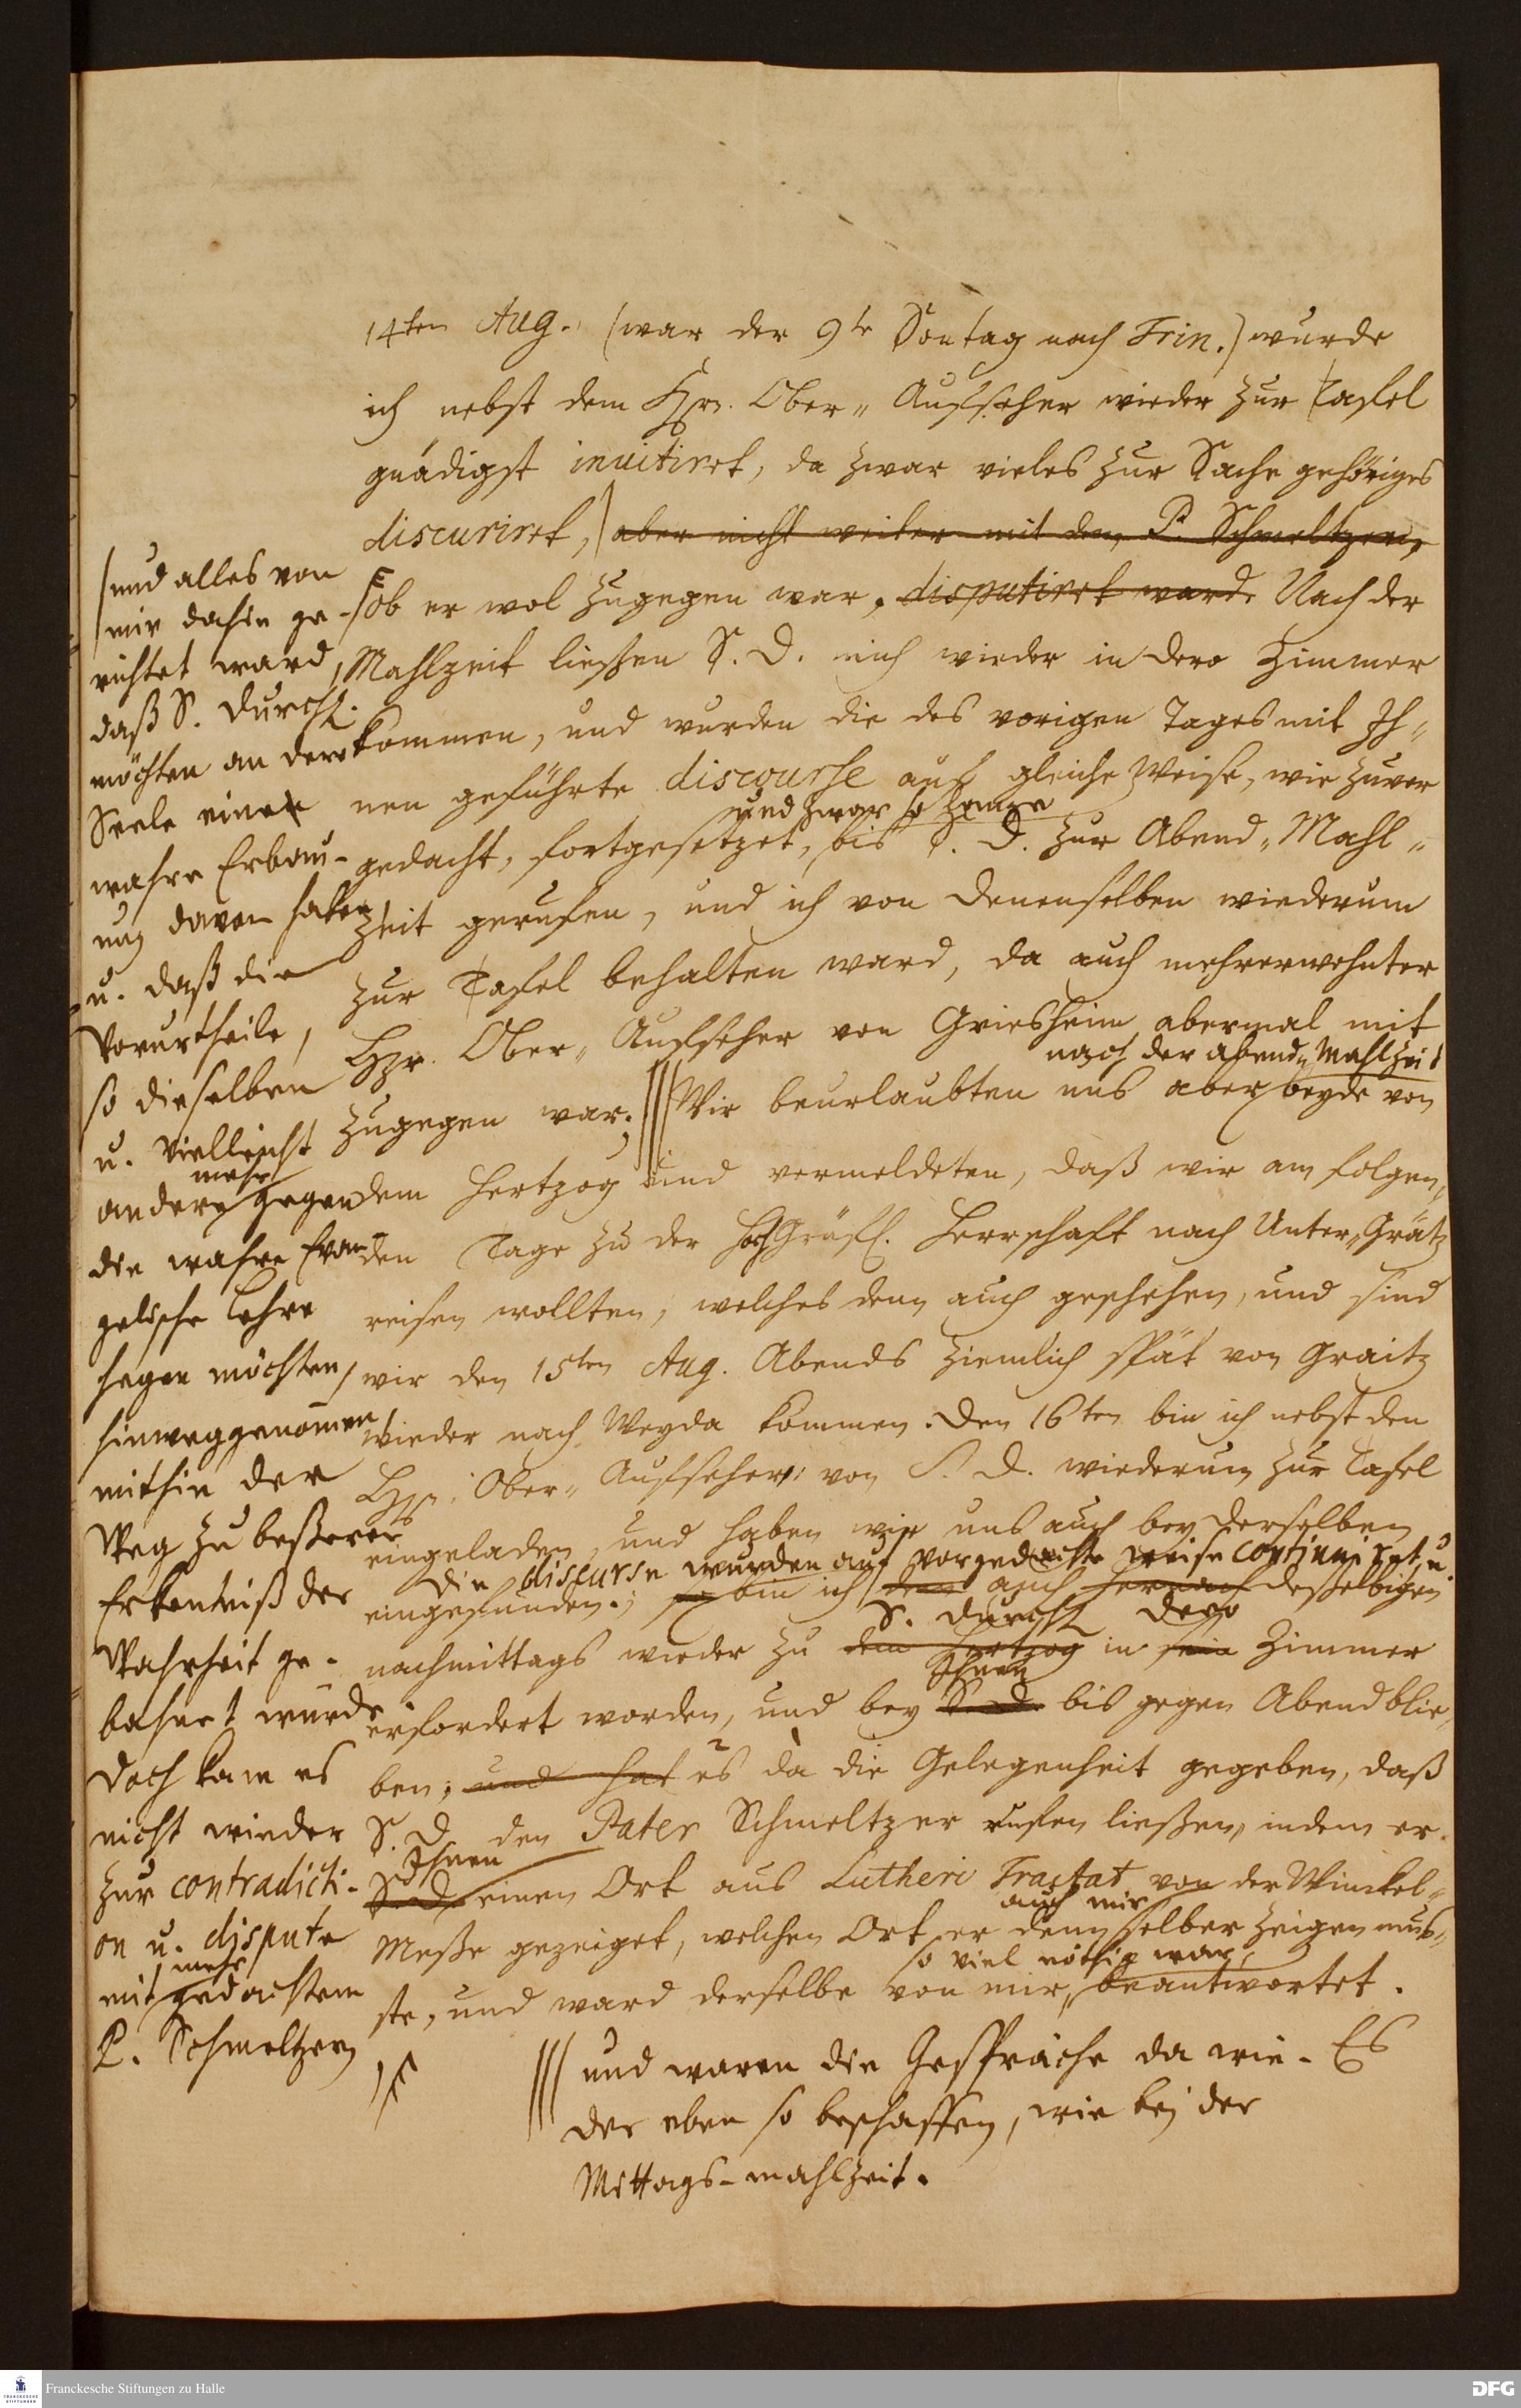 14ten Aug. (war der 9te Sontag nach Trin.) wurde
ich nebst dem Hrn. Ober-Aufseher wieder zur Tafel
gnädigst invitiret, da zwar vieles zur Sache gehöriges
discuriret, aber nicht weiter mit dem P. Schmeltzern,
ob er wol zugegen war, disputiret ward. Nach der
Mahlzeit liessen S. D. mich wieder in dero Zimmer
kommen, und wurden die des vorigen Tages mit Ih-
nen geführte discourse auf gleiche Weise, wie zuvor
und zwar so lange
gedacht, fortgesetzet, bis S. D. zur Abend-Mahl-
zeit gerufen, und ich von Denenselben wiederum
zur Tafel behalten ward, da auch mehrerwehnter
Hr. Ober-Aufseher von Griesheim abermal mit
nach der abend-Mahlzeit
zugegen war. Wir beurlaubten uns aber beyde von
dem Hertzog und vermeldeten, daß wir am folgen-
den Tage zu der HochGräfl. Herrschaft nach Unter-Grätz
reisen wollten, welches denn auch geschehen, und sind
wir den 15ten Aug. Abends ziemlich spät von Graitz
wieder nach Weyda kommen. Den 16ten bin ich nebst den
Hrn. Ober-Aufseher von S. D. wiederum zur Tafel
eingeladen, und haben wir uns auch bey derselben
die discurse wurden auf vorgedachte weise continuiret, u.
eingefunden; so bin ich denn auch hernach desselbigen
S. Durchl. Dero
nachmittags wieder zu dem Hertzog in sein Zimmer
Ihnen
erfordert worden, und bey S. D. bis gegen Abend blie-
ben; und hat es da die Gelegenheit gegeben, daß
S. D. den Pater Schmeltzer rufen ließen, indem er
Ihnen
S. D. einen Ort aus Lutheri Tractat von der Winckel-
auch mir
Messe gezeiget, welchen Ort er denn selber zeigen mus-
so viel nöthig war,
ste, und ward derselbe von mir beantwortet.
Es
und waren die Gespräche da wie-
der eben so beschaffen, wie bej der
Mittags-mahlzeit.
und alles von
mir dahin ge-
richtet ward,
daß S. Durchl.
möchten an dero
Seele eine
wahre Erbau-
ung davon haben
u. daß die
Vorurtheile,
so dieselben
u. vielleicht
mehr
andere gegen
die wahre Evan-
gelische Lehre
hegen möchten,
hinweggenommen
mithin der
Weg zu beßerer
Erkentniß der
Wahrheit ge-
bahnet würde
doch kam es
nicht wieder
zur contradicti-
on u. dispute
mehr
mit gedachtem
P. Schmeltzern
Franckesche Stiftungen zu Halle
DFG